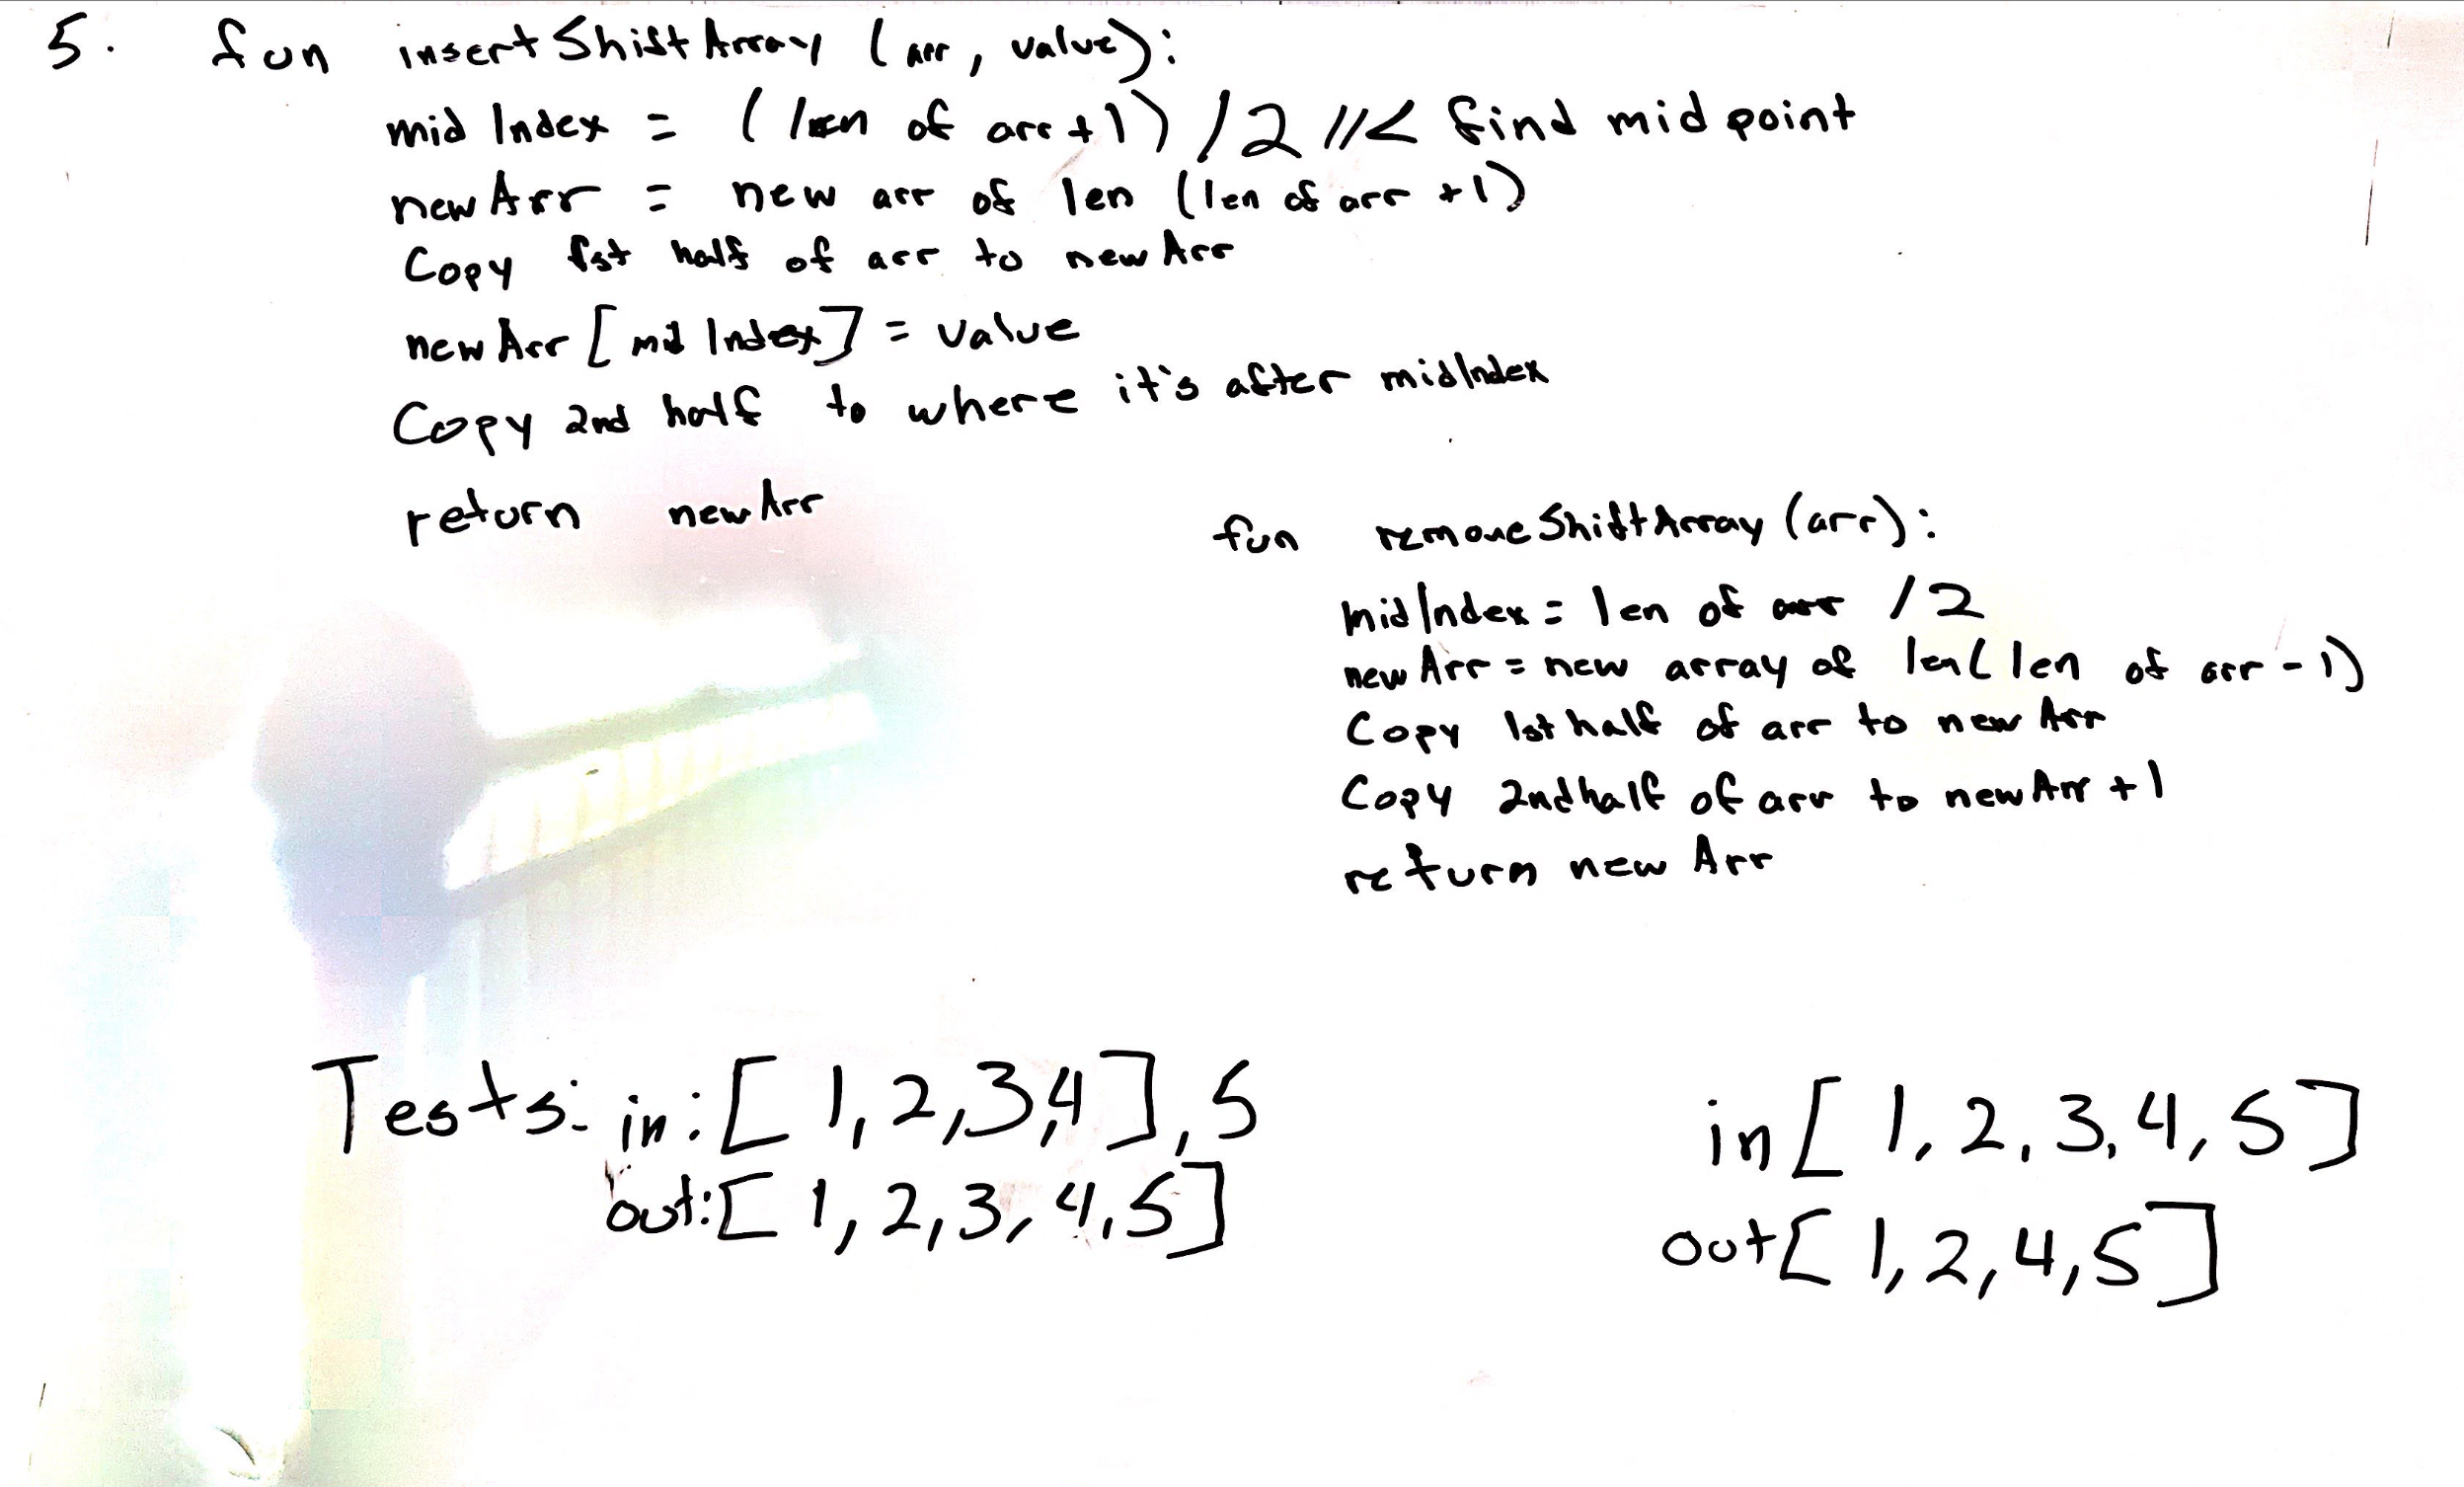 5. fun insertShiftArray (arr, value):
midIndex = (len of arr + 1) / 2 //< find midpoint
newArr = new arr of len (len of arr + 1)
Copy 1st half of arr to newArr
newArr [midIndex] = value
Copy 2nd half to where it's after midIndex
return newArr
fun removeShiftArray (arr):
midIndex = len of arr / 2
newArr = new array of len( len of arr - 1)
Copy 1st half of arr to newArr
Copy 2nd half of arr to newArr + 1
return newArr
Tests: in: [ 1, 2, 3, 4 ], 5
out: [ 1, 2, 3, 4, 5 ]
in [ 1, 2, 3, 4, 5 ]
out [ 1, 2, 4, 5 ]